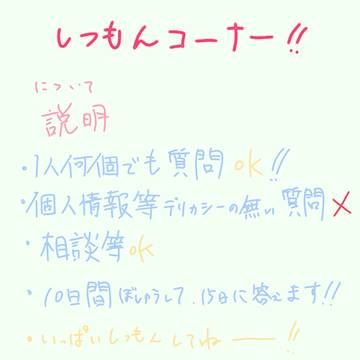 しつもんコーナー!!
について
説明
・1人何個でも質問OK!!
・個人情報等デリカシーの無い質問×
・相談等OK
・10日間ぼしゅうして、15日に答えます!!
・いっぱいしつもんしてねー!!